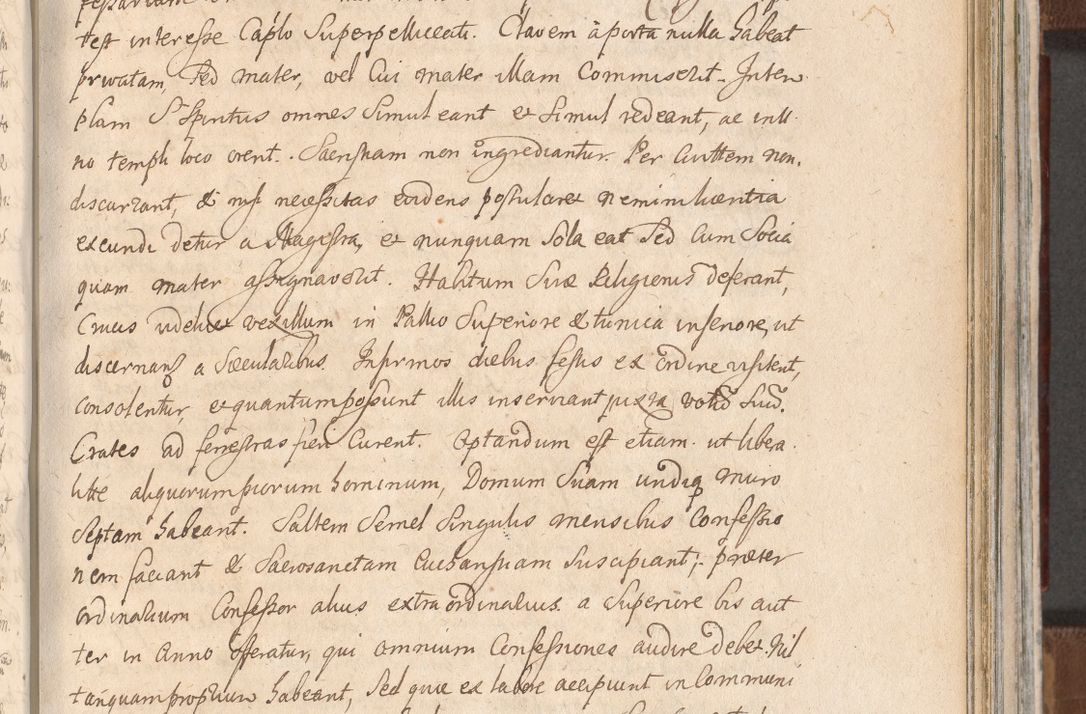 test interesse Caplo Superpelliceati. Clavem à porta nulla habeat
privatam, Sed mater, vel Cui mater illam Commiserit. In tem-
plum S. Spiritus omnes Simul eant et Simul redeant, ac in ull
no templi loco orent. Sacristiam non ingrediantur. Per Civittem non
discurrant, & nisi necessitas evidens postularet nemini licentia
exeundi detur a Magistra, et nunquam Sola eat Sed Cum Socia
quam mater assignaverit. Habitum Suæ Religionis deferant,
Crucis videlicet vexillum in Pallio Superiore & tunica inferiore, ut
discernantur a Sæcularibus. Infirmos diebus festis ex ordine visitent,
consolentur, et quantum possunt illis inserviant juxta votũ Suũ.
Crates ad fenestras fieri Curent. Optandum est etiam ut libera
litte aliquorum piorum hominum, Domum Suam undiq muro
Septam habeant. Saltem Semel Singulis mensibus Confessio
nem faciant & Sacrosanctam Eucharistiam Suscipiant; præter
ordinarium Confessor alius extraordinarius a Superiore bis aut
ter in Anno offeratur, qui omnium Confessiones audire debet. Nil
tanquam proprium habeant, Sed quæ ex labore accipiunt in Communi